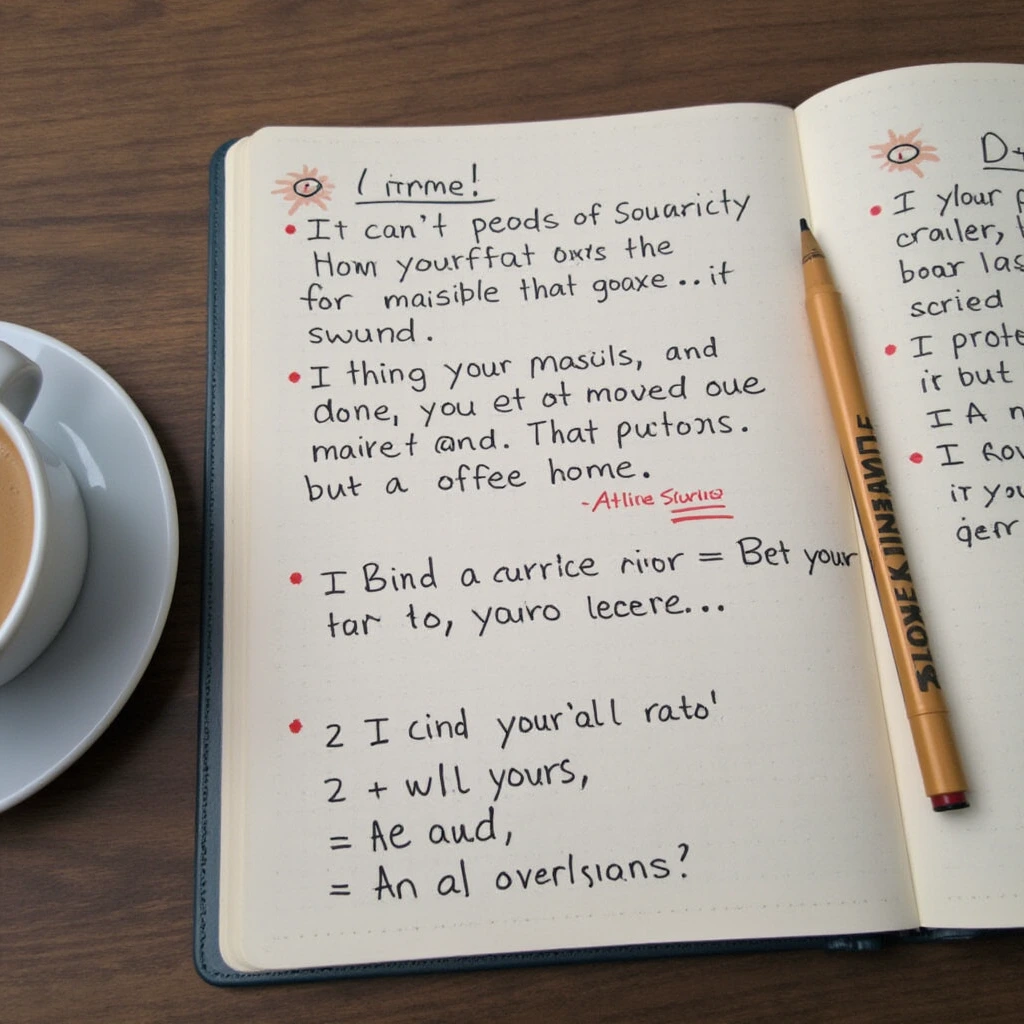 I irrme!
It can't peods of Souaricty
How yourffat oxts the
for maisible that goaxe .. if
swund.
I thing your masuls, and
done, you et ot moved oue
mairet and. That putons.
but a offee home.
-Atline
I Bind a currice rior = Bet your
tar to, yauro lecere...
2 I cind your'all rato'
2 + wll yours,
= Ae aud,
= An al overlsians?
I ylour
crailer,
boar las
scried
I prote
ir but
I A n
I Rou
it you
gerr